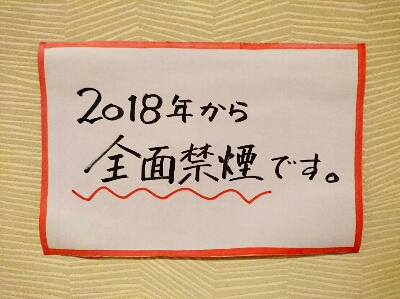 2018年から
全面禁煙です。